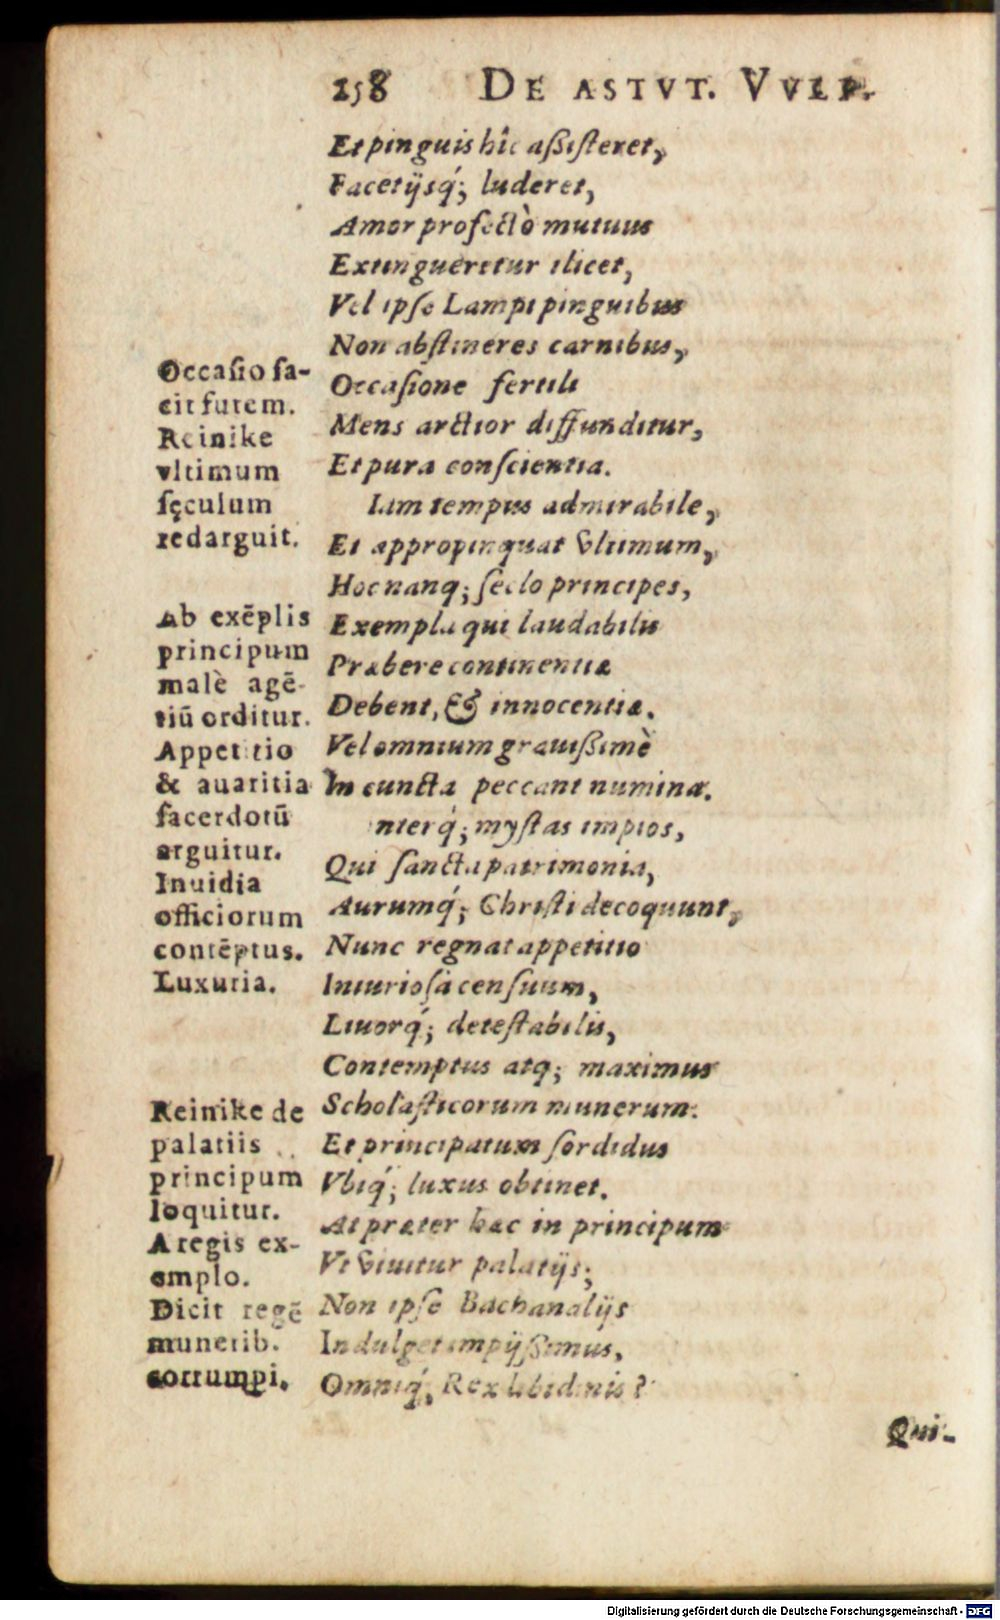 258 DE ASTVT. VVLP.
Et pinguis hîc aßisteret,
Facetijsq́; luderet,
Amor profectò mutuus
Extingueretur ilicet,
Vel ipse Lampi pinguibus
Non abstineres carnibus,
Occasione fertili
Mens arctior diffunditur,
Et pura conscientia.
Iam tempus admirabile,
Et appropinquat vltimum,
Hoc nanq; seclo principes,
Exempla qui laudabilis
Præbere continentiæ
Debent, & innocentiæ.
Vel omnium grauißimè
In cuncta peccant numina.
nterq́; mystas impios,
Qui sancta patrimonia,
Aurumq́; Christi decoquunt,
Nunc regnat appetitio
Iniuriosa censuum,
Liuorq́; detestabilis,
Contemptus atq; maximus
Scholasticorum munerum.
Et principatum sordidus
Vbiq́; luxus obtinet.
At præter hæc in principum
Vt viuitur palatijs;
Non ipse Bachanalijs
Indulget impijßimus,
Omniq́; Rex libidinis?
Occasio fa-
cit furem.
Reinike
vltimum
sęculum
redarguit.
Ab exēplis
principum
malè agē-
tiū orditur.
Appetitio
& auaritia
sacerdotū
arguitur.
Inuidia
officiorum
contēptus.
Luxuria.
Reinike de
palatiis
principum
loquitur.
A regis ex-
emplo.
Dicit regē
munerib.
corrumpi.
Qui-
Digitalisierung gefördert durch die Deutsche Forschungsgemeinschaft - DFG